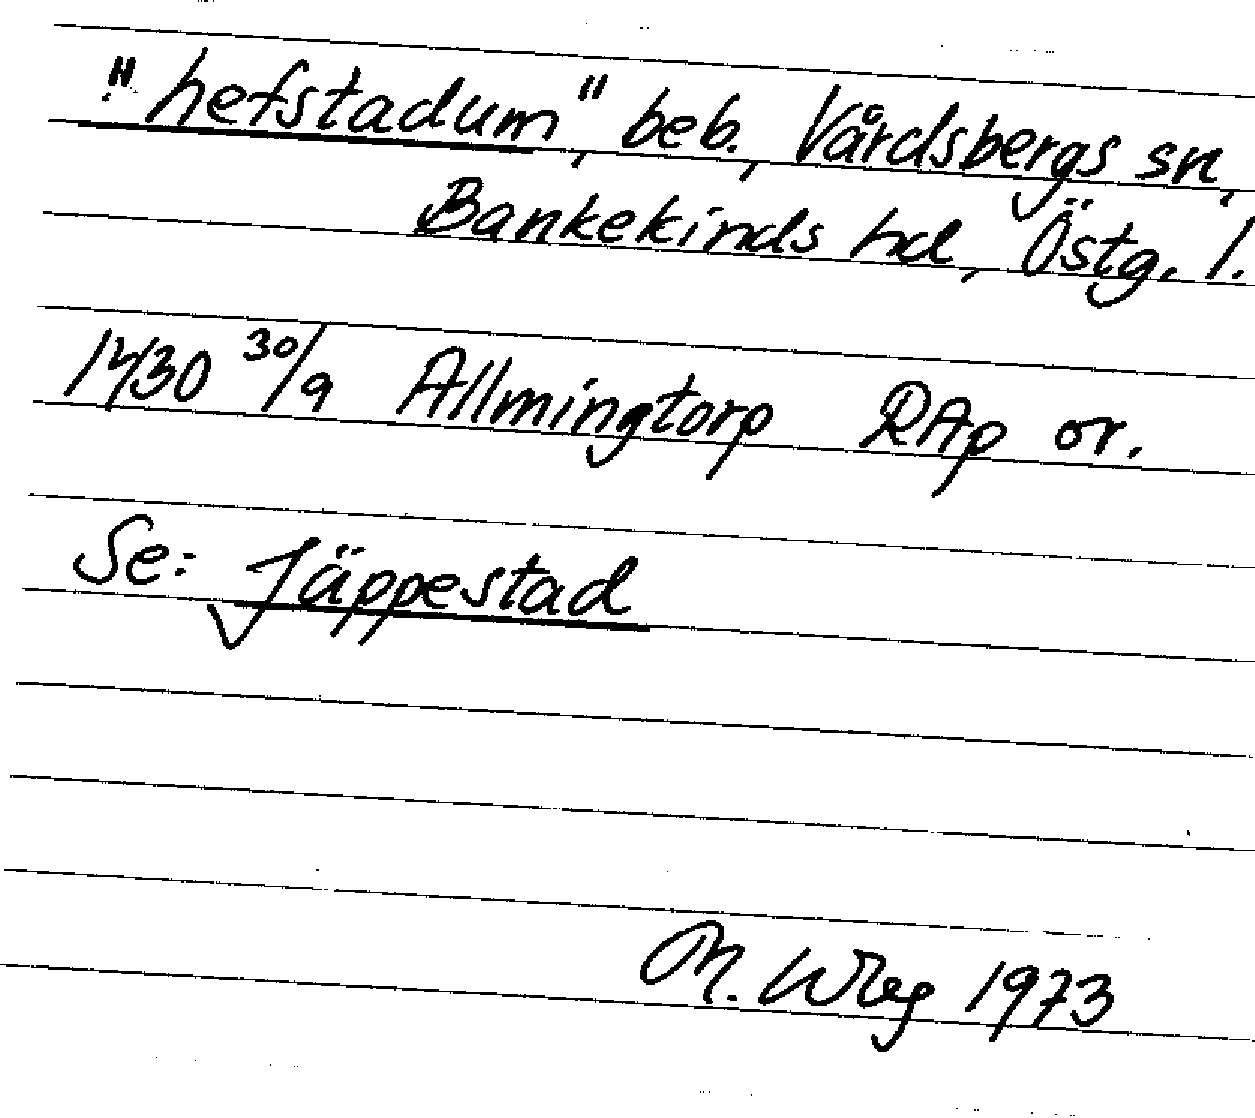 "hefstadum", beb., Vårdsbergs sn,
Bankekinds hd, Östg. l.
1430 30/9 Allmingtorp RAp or.
Se: Jäppestad
M. 1973